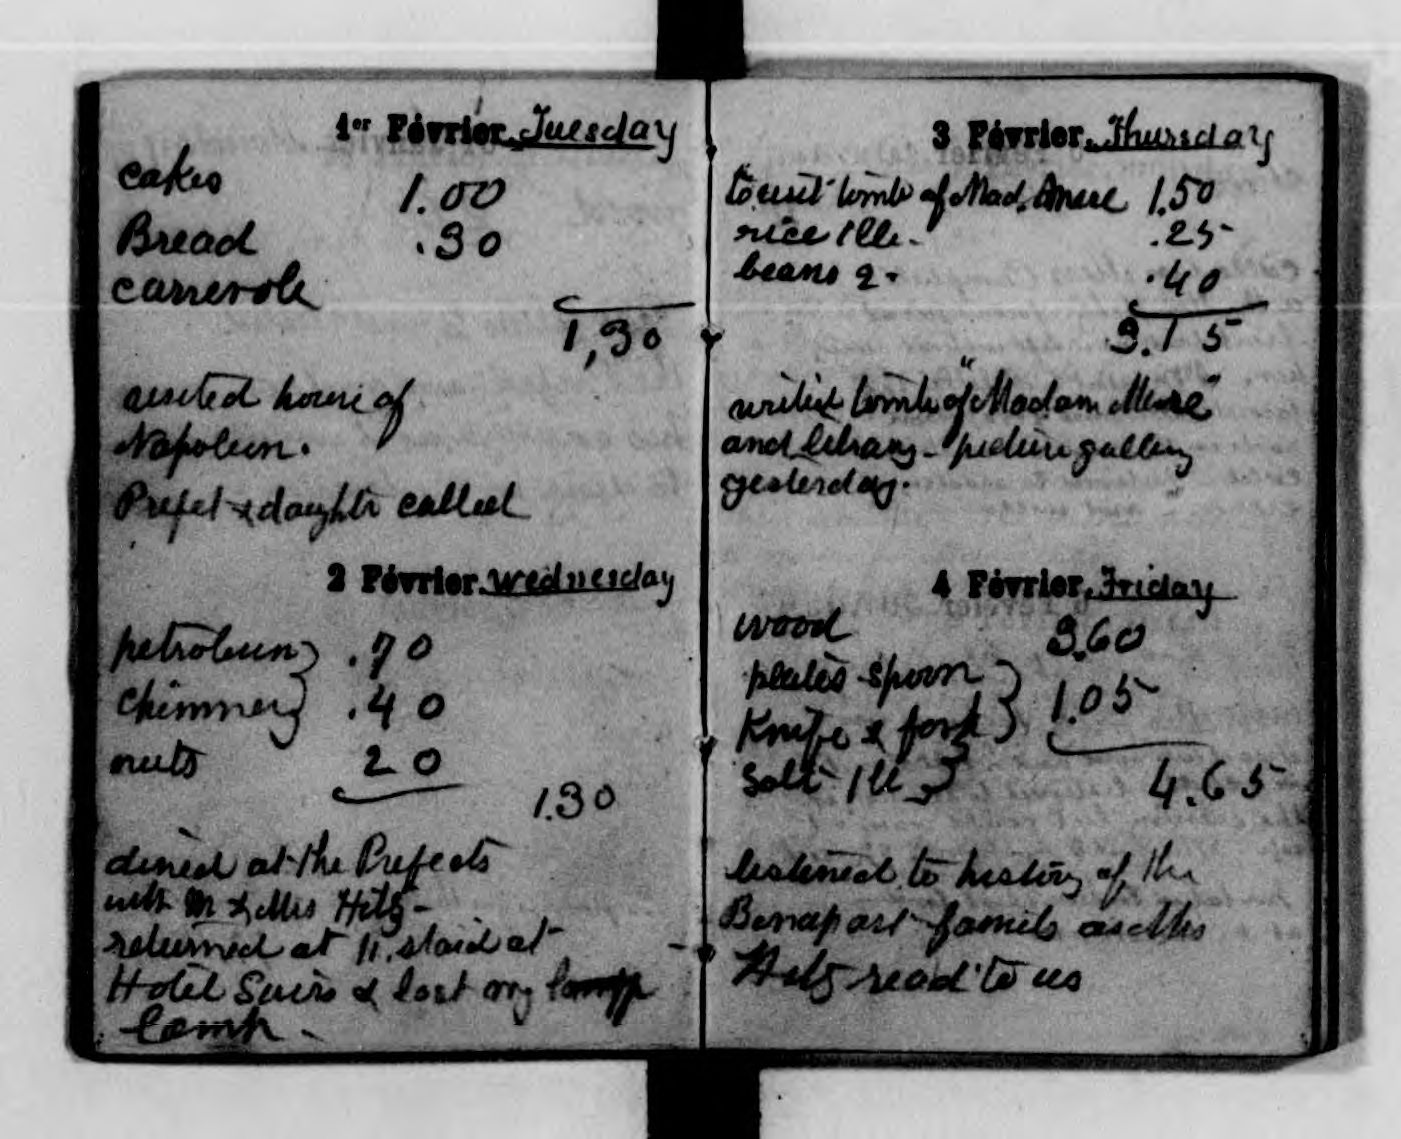 1er Février. Tuesday
cakes 1.00
Bread .30
casserole
1,30
visited house of
Napoleon.
Prefet & daughter called
2 Février. Wednesday
petroleum .70
chimney .40
nuts 20
1.30
dined at the Prefects
with Mr & Mrs Hitz -
returned at 11. staid at
Hotel Suiss & lost my
lamp -
3 Février. Thursday
to visit tomb of Mad. Mere 1.50
rice 1 lb. .25
beans 2. .40
3.15
visited tomb of "Madam Mere"
and library - picture gallery
yesterday.
4 Février. Friday
wood 3.60
plates spoon
Knife & fork 1.05
Salt 1 lb
4.65
listened to history of the
Bonapart family as Mrs
Hitz read to us